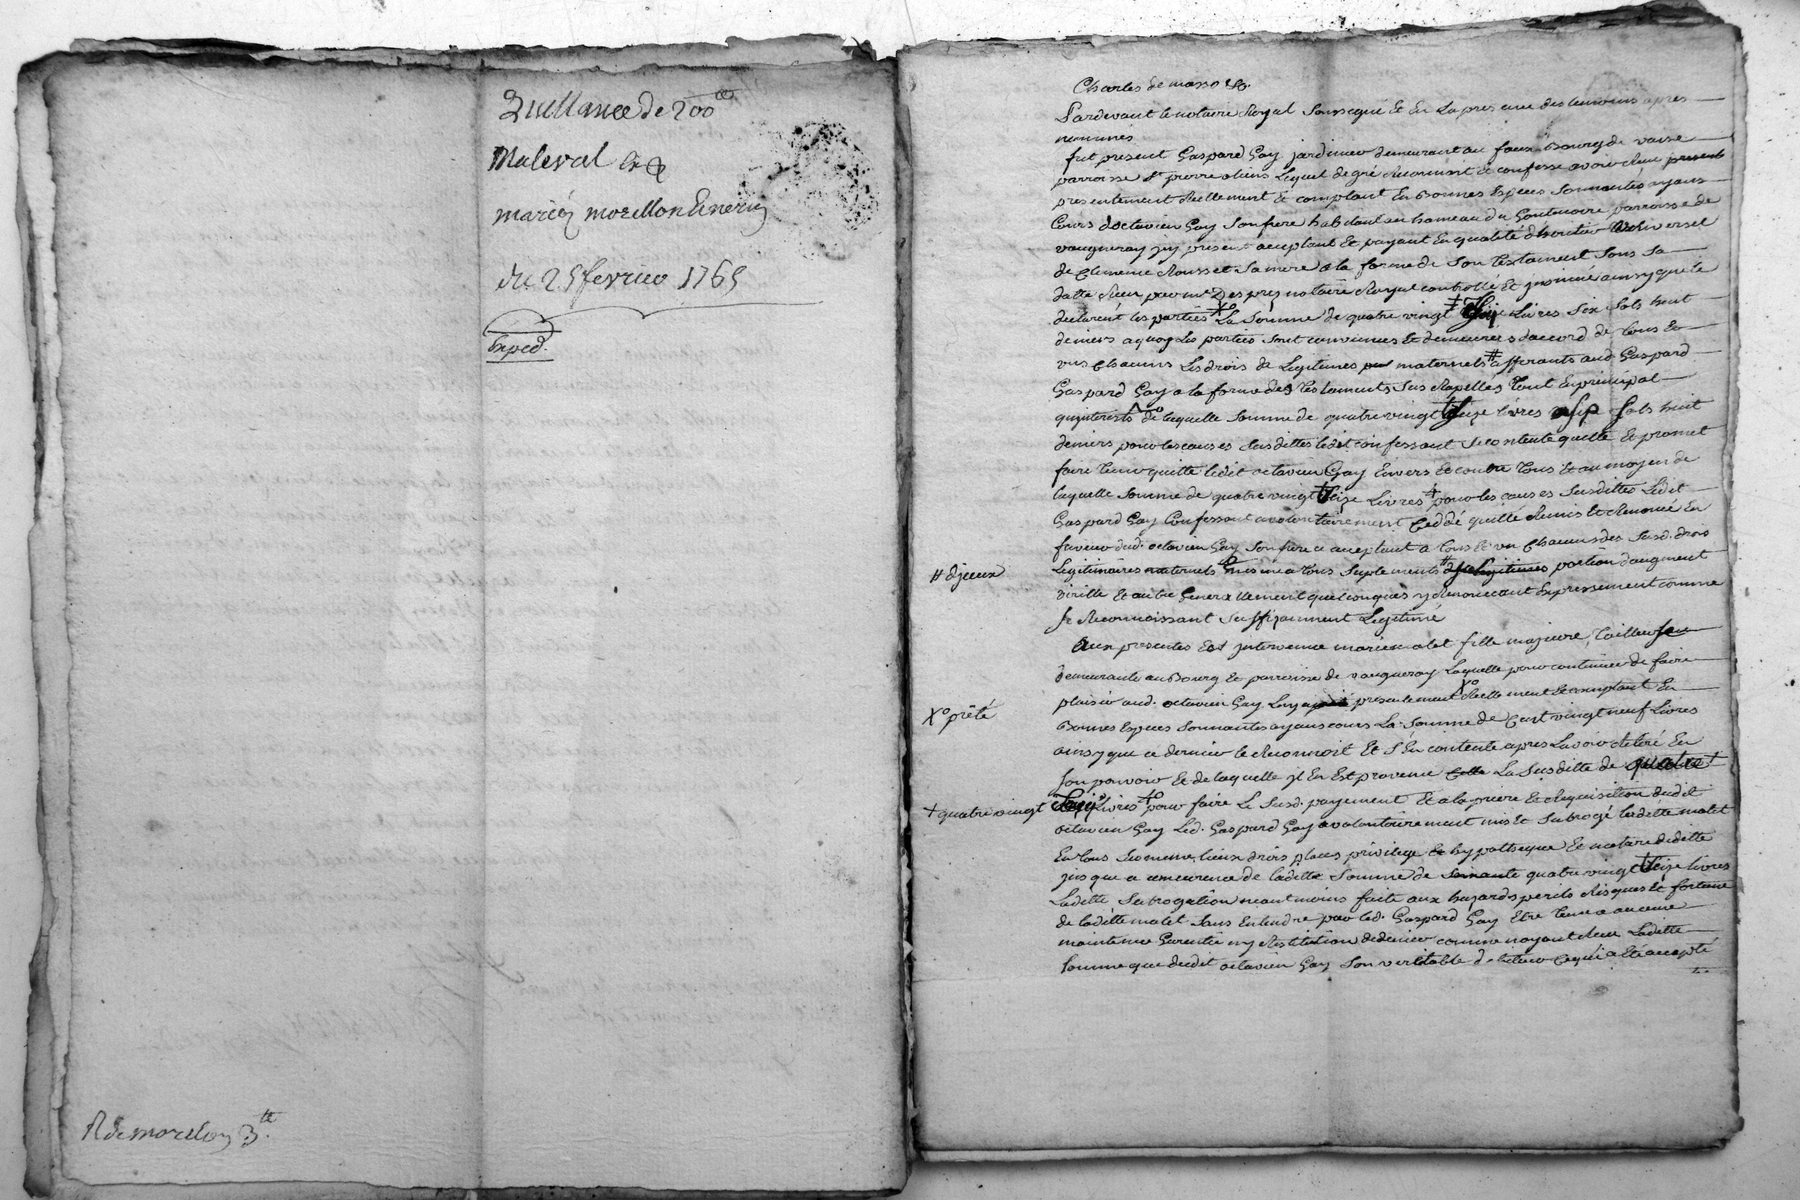 Quittance de 200ᵗᵗ
Maleval et
mariez morillon Enery
du 25 fevrier 1765
Exped.
R de morillon 3ᵗᵗ
Charles de masso &a.
Pardevant le notaire Royal soussigné Et En La presence des temoins apres
nommés
fut present Gaspard Gay jardinier demeurant au faux Bourg de vaise
parroisse St pierre Lequel de gré Reconnoit Et confesse avoir Reçu
presentement Reellement Et comptant En Bonnes Especes Sonnantes ayans
Cours d'octavien Gay Son frere habitant au hameau du parroisse de
vaugneray jcy present acceptant Et payant En qualité d'heritier universel
de Clemence Rousset Sa mere a la forme de Son testament Sous Sa
datte Reçu par me Desprez notaire Royal controllé Et jnsinué ainsy que le
declarent les parties La Somme de quatre vingt treize Livres Six Sols huit
deniers a quoy Les parties Sont convenues Et demeurées d'accord de tous Et
uns chacuns Les droits de Legitimes maternels # afferants aud. Gaspard
Gaspard Gay a la forme des testaments Sus Rapellés tout En principal
qu'jnterets de laquelle Somme de quatre vingt treize livres Six Sols huit
deniers pour les causes Susdittes ledit confessant Se contente quitte Et promet
faire tenir quitte ledit octavien Gay Envers Et contre tous Et au moyen de
laquelle Somme de quatre vingt treize Livres pour les causes Susdittes Ledit
Gaspard Gay Confessant a volontairement Ceddé quitté Remis Et Renoncé En
faveur dud. octavien Gay Son frere ce acceptant a tous Et un Chacuns des Susd. droits
# d'jceux
Legitimaires maternels mesme a tous Suplements # portion d'augment
virille Et autre Generallement quelconques y Renonceant Expressement comme
Se Reconnoissant Suffisamment Legitimé
Aux presentes Est jntervenue marie malet fille majeure, tailleuse
demeurante au Bourg Et parroisse de vaugneray Laquelle pour continuer de faire
X° prêté
plaisir aud. octavien Gay Luy a presentement X° Reellement Et comptant En
Bonnes Especes Sonnantes ayans cours La Somme de Cent vingt neuf Livres
ainsy que ce dernier le Reconnoit Et S'En contente apres L'avoir Retiré En
Son pouvoir Et de laquelle jl En Est provenu La Susditte de quatre
+ quatre vingt
treize livres pour faire Le Susd. payement Et a la priere Et Requisition dudit
octavien Gay Led. Gaspard Gay a volontairement mis Et Subrogé laditte malet
En tous Ses memes lieux droits places privilege Et hypotheque Et
jusqu'a concurrence de laditte Somme de quatre vingt treize livres
Laditte Subrogation neantmoins faite aux hazards perils Risques Et fortune
de laditte malet Sans Entendre par led. Gaspard Gay Etre tenu a aucune
maintenue Garentie ny Restitution de denier comme n'ayant Reçu Laditte
Somme que dudit octavien Gay Son veritable debiteur Ce qui a Eté accepté